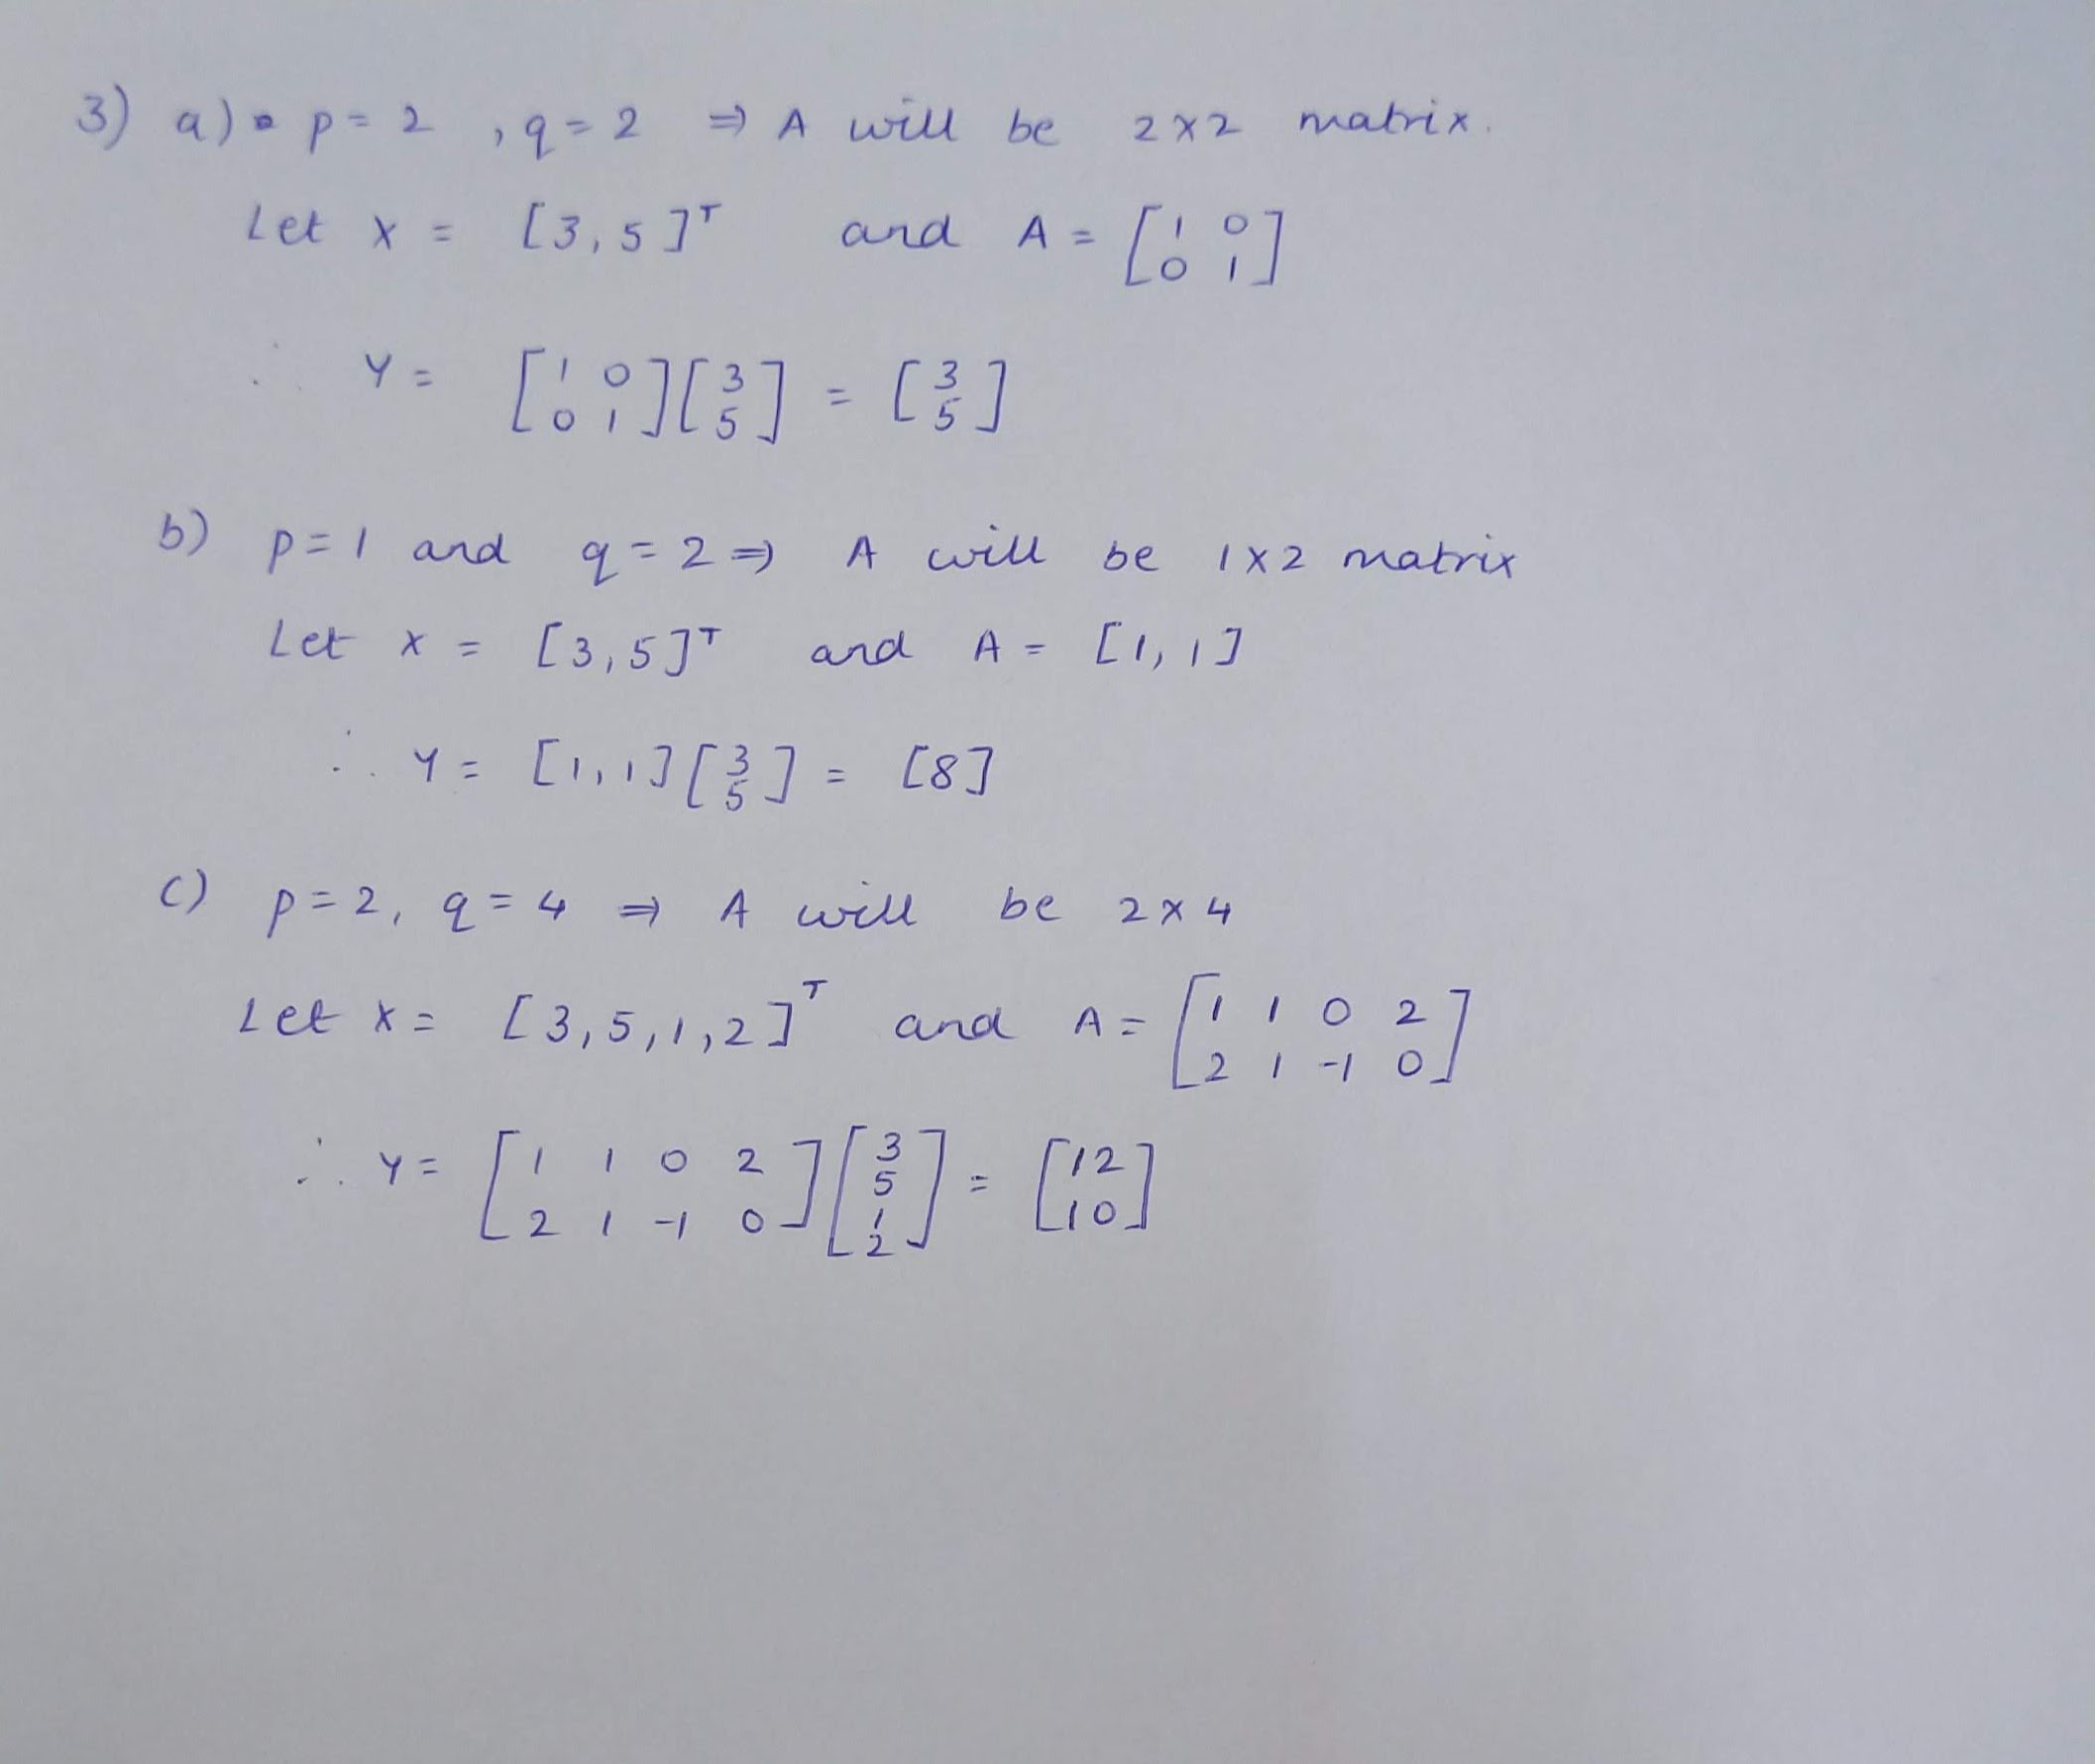 3) a) p = 2 , q = 2 ⇒ A will be 2 x 2 matrix.
Let x = [3, 5]ᵀ and A = [1 0; 0 1]
∴ Y = [1 0; 0 1] [3; 5] = [3; 5]
b) p = 1 and q = 2 ⇒ A will be 1 x 2 matrix
Let x = [3, 5]ᵀ and A = [1, 1]
∴ Y = [1, 1] [3; 5] = [8]
c) p = 2, q = 4 ⇒ A will be 2 x 4
Let x = [3, 5, 1, 2]ᵀ and A = [1 1 0 2; 2 1 -1 0]
∴ Y = [1 1 0 2; 2 1 -1 0] [3; 5; 1; 2] = [12; 10]